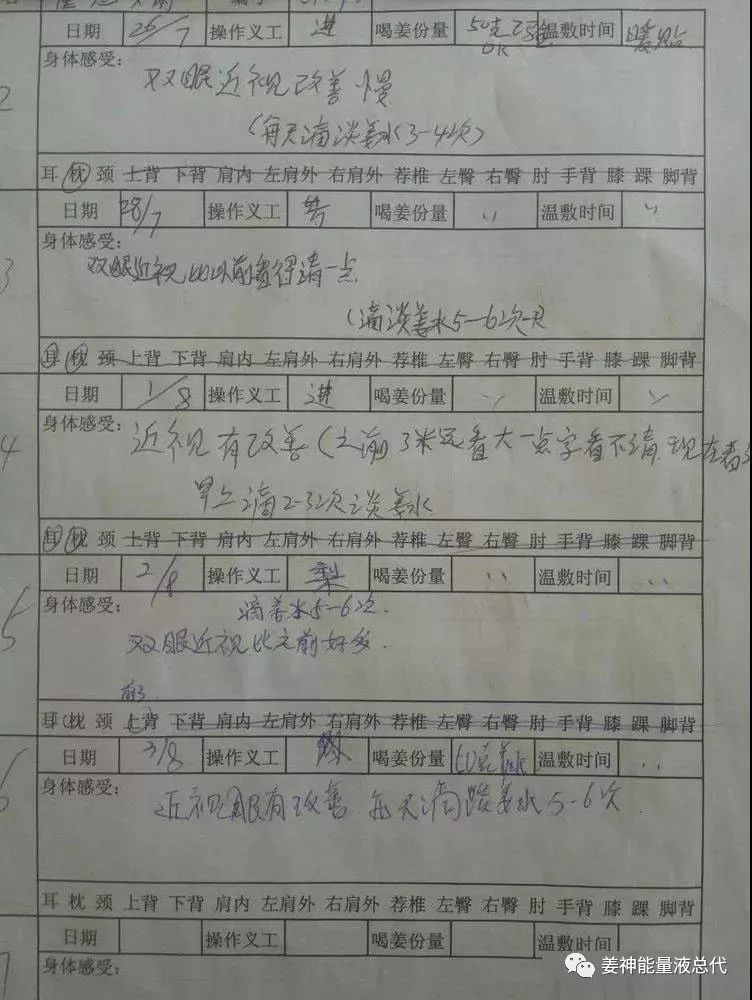 日期 26/7 操作义工 进 喝姜份量 50克 温敷时间 暖贴
2
身体感受:
双眼近视改善慢
(每天滴淡姜水3-4次)
耳 枕 颈 上背 下背 肩内 左肩外 右肩外 荐椎 左臀 右臀 肘 手背 膝 踝 脚背
日期 28/7 操作义工 喝姜份量 ,, 温敷时间 ,,
3
身体感受:
双眼近视比以前看得清一点
(滴淡姜水5-6次一天
耳 枕 颈 上背 下背 肩内 左肩外 右肩外 荐椎 左臀 右臀 肘 手背 膝 踝 脚背
日期 1/8 操作义工 进 喝姜份量 ,, 温敷时间 ,,
4
身体感受:
近视有改善(之前3米远看大一点字看不清.现在看
早上滴2-3次淡姜水
耳 枕 颈 上背 下背 肩内 左肩外 右肩外 荐椎 左臀 右臀 肘 手背 膝 踝 脚背
日期 2/8 操作义工 梨 喝姜份量 ,, 温敷时间 ,,
5
身体感受:
滴姜水5-6次.
双眼近视比之前好多.
耳 枕 颈 上背 下背 肩内 左肩外 右肩外 荐椎 左臀 右臀 肘 手背 膝 踝 脚背
日期 3/8 操作义工 喝姜份量 50克姜水 温敷时间 ,,
6
身体感受:
近视眼有改善 每天滴 姜水5-6次
耳 枕 颈 上背 下背 肩内 左肩外 右肩外 荐椎 左臀 右臀 肘 手背 膝 踝 脚背
日期 操作义工 喝姜份量 温敷时间
7
身体感受:
姜神能量液总代